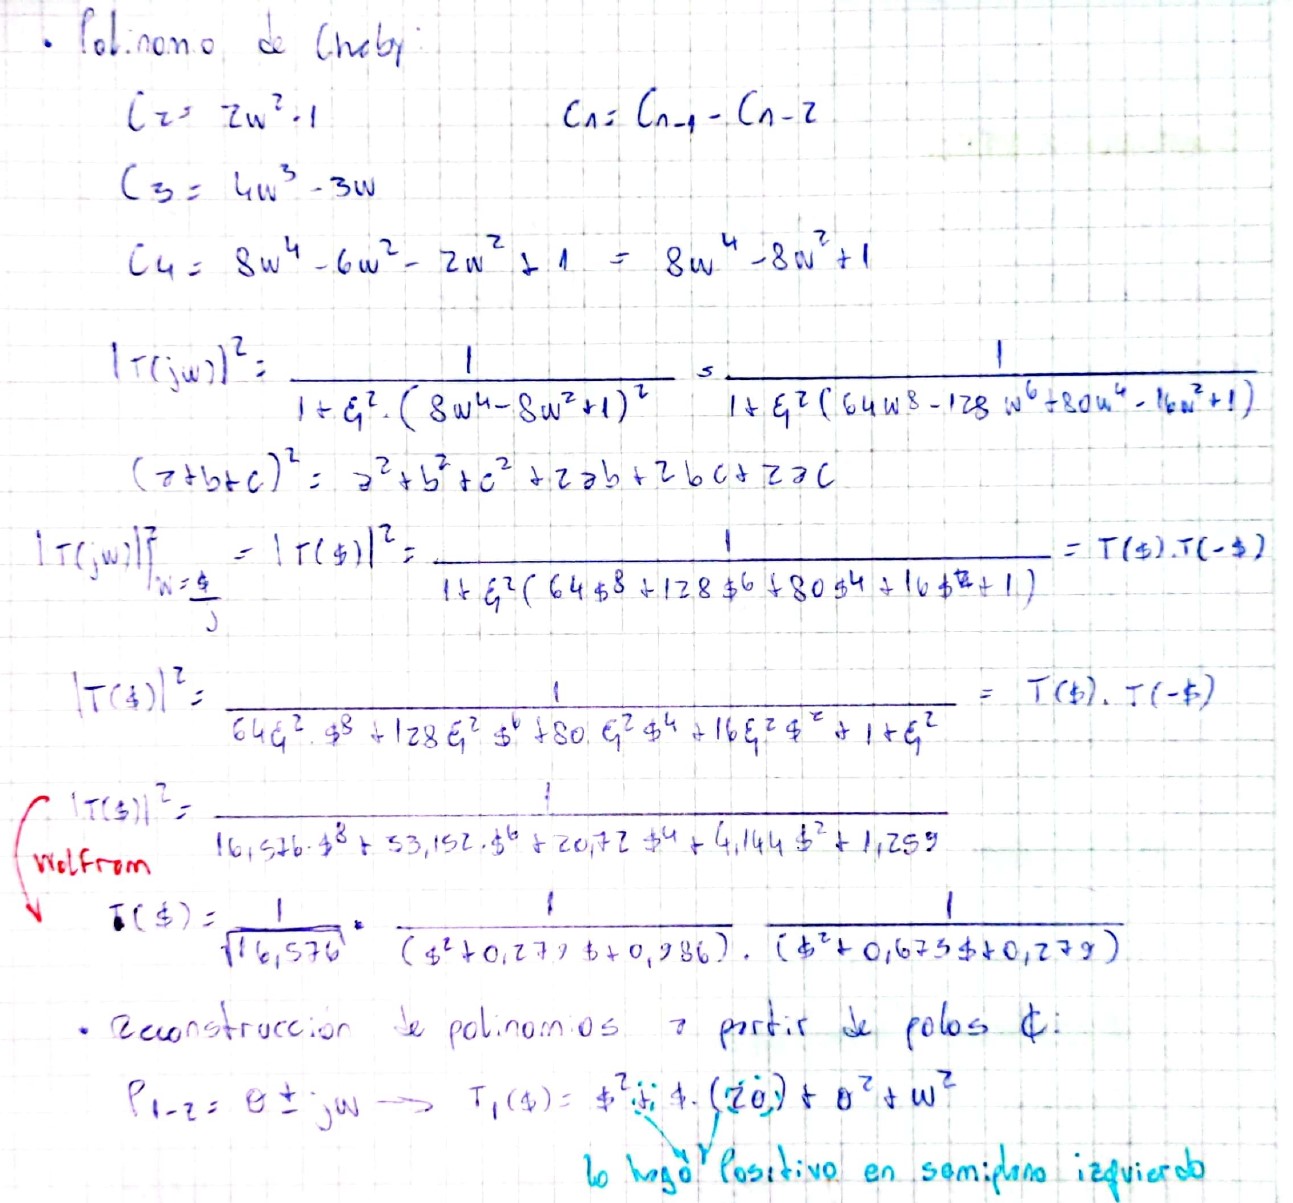 • Polinomo de Cheby:
C2 = 2w² - 1    Cn = Cn-1 - Cn-2
C3 = 4w³ - 3w
C4 = 8w⁴ - 6w² - 2w² + 1 = 8w⁴ - 8w² + 1
|T(jw)|² = 1 / (1 + ξ² · (8w⁴ - 8w² + 1)²) = 1 / (1 + ξ² (64w8 - 128w⁶ + 80w⁴ - 16w² + 1))
(a+b+c)² = a² + b² + c² + 2ab + 2bc + 2ac
|T(jw)|²|w=$/j = |T($)|² = 1 / (1 + ξ² (64$⁸ + 128$⁶ + 80$⁴ + 16$² + 1)) = T($).T(-$)
|T($)|² = 1 / (64ξ² · $⁸ + 128ξ² $⁶ + 80 ξ² $⁴ + 16ξ² $² + 1 + ξ²) = T($). T(-$)
|T($)|² = 1 / (16,576 · $⁸ + 33,152 · $⁶ + 20,72 $⁴ + 4,144 $² + 1,259)
Wolfram
T($) = 1/√16,576 · 1/($² + 0,279 $ + 0,986) · 1/($² + 0,675 $ + 0,279)
• Reconstruccion de polinomios a partir de polos ₵:
P1-2 = σ ± jw → T1($) = $² + $ · (2σ) + σ² + w²
lo hago Positivo en semiplano izquierdo